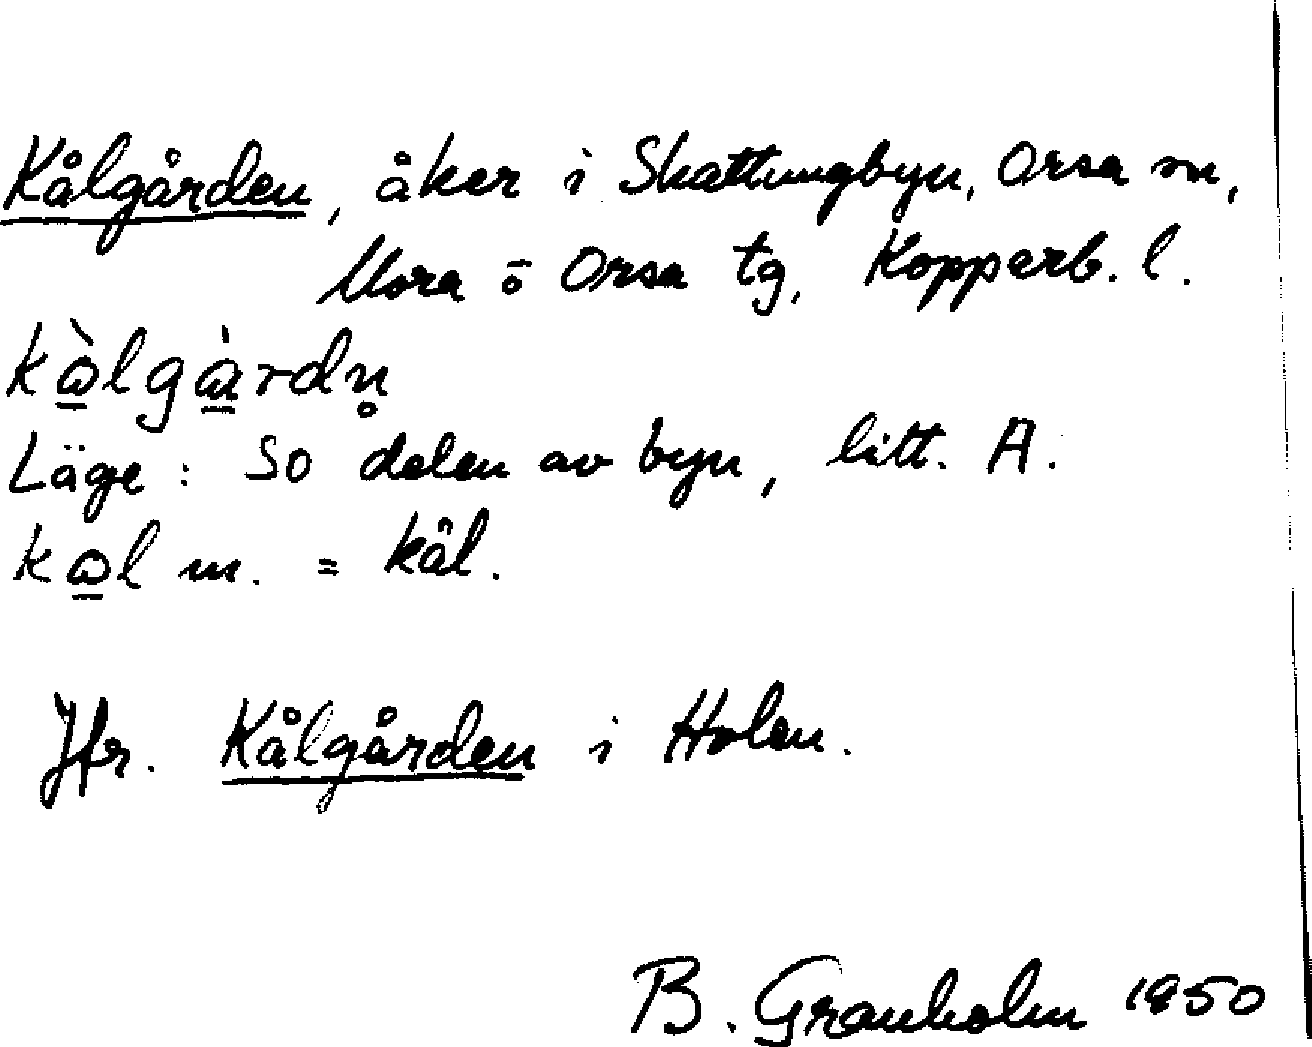 Kålgården, åker i Skattungbyn, Orsa sn,
Mora o Orsa tg, Kopparb. l.
kὼ̱lgὼ̱rdn̥
Läge: So delen av byn, litt. A.
kω̱l m. = kål.
Jfr. Kålgården i Holen.
B. Granholm 1950